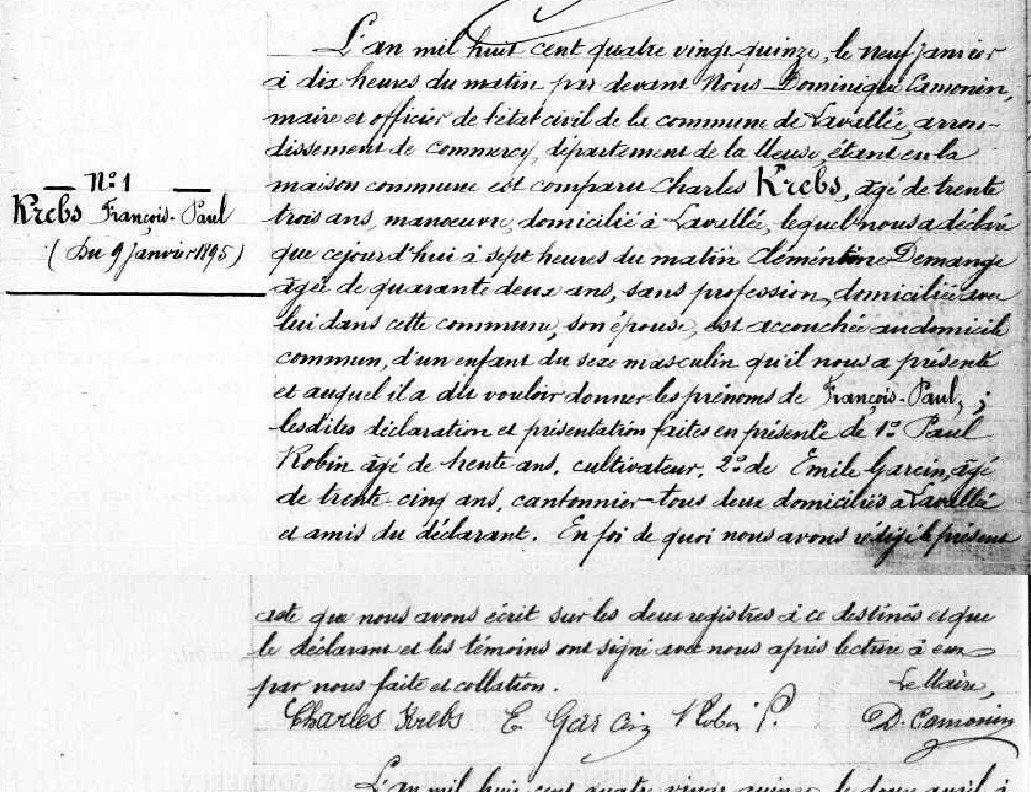 L'an mil huit cent quatre vingt quinze, le neuf janvier
à dix heures du matin par devant Nous Dominique Camonin,
maire et officier de l'état civil de la commune de Lavallée, arron-
dissement de Commercy, département de la Meuse, étant en la
maison commune est comparu Charles Krebs, âgé de trente
trois ans, manœuvre, domicilié à Lavallée, lequel nous a déclaré
que cejourd'hui à sept heures du matin Clémentine Demange
âgée de quarante deux ans, sans profession, domiciliée avec
lui dans cette commune, son épouse, est accouchée au domicile
commun, d'un enfant du sexe masculin qu'il nous a présenté
et auquel il a dit vouloir donner les prénoms de François-Paul, ;
lesdites déclaration et présentation faites en présence de 1° Paul
Robin âgé de trente ans, cultivateur, 2° de Emile Garcin, âgé
de trente-cinq ans, cantonnier - tous deux domiciliés à Lavallée
et amis du déclarant. En foi de quoi nous avons rédigé le présent
N° 1
Krebs François-Paul
(Du 9 Janvier 1895)
acte que nous avons écrit sur les deux registres à ce destinés et que
le déclarant et les témoins ont signé avec nous après lecture à eux
par nous faite et collation.
Le Maire,
Charles Krebs E. Garcin Robin P. D. Camonin
L'an mil huit cent quatre vingt quinze, le douze avril à